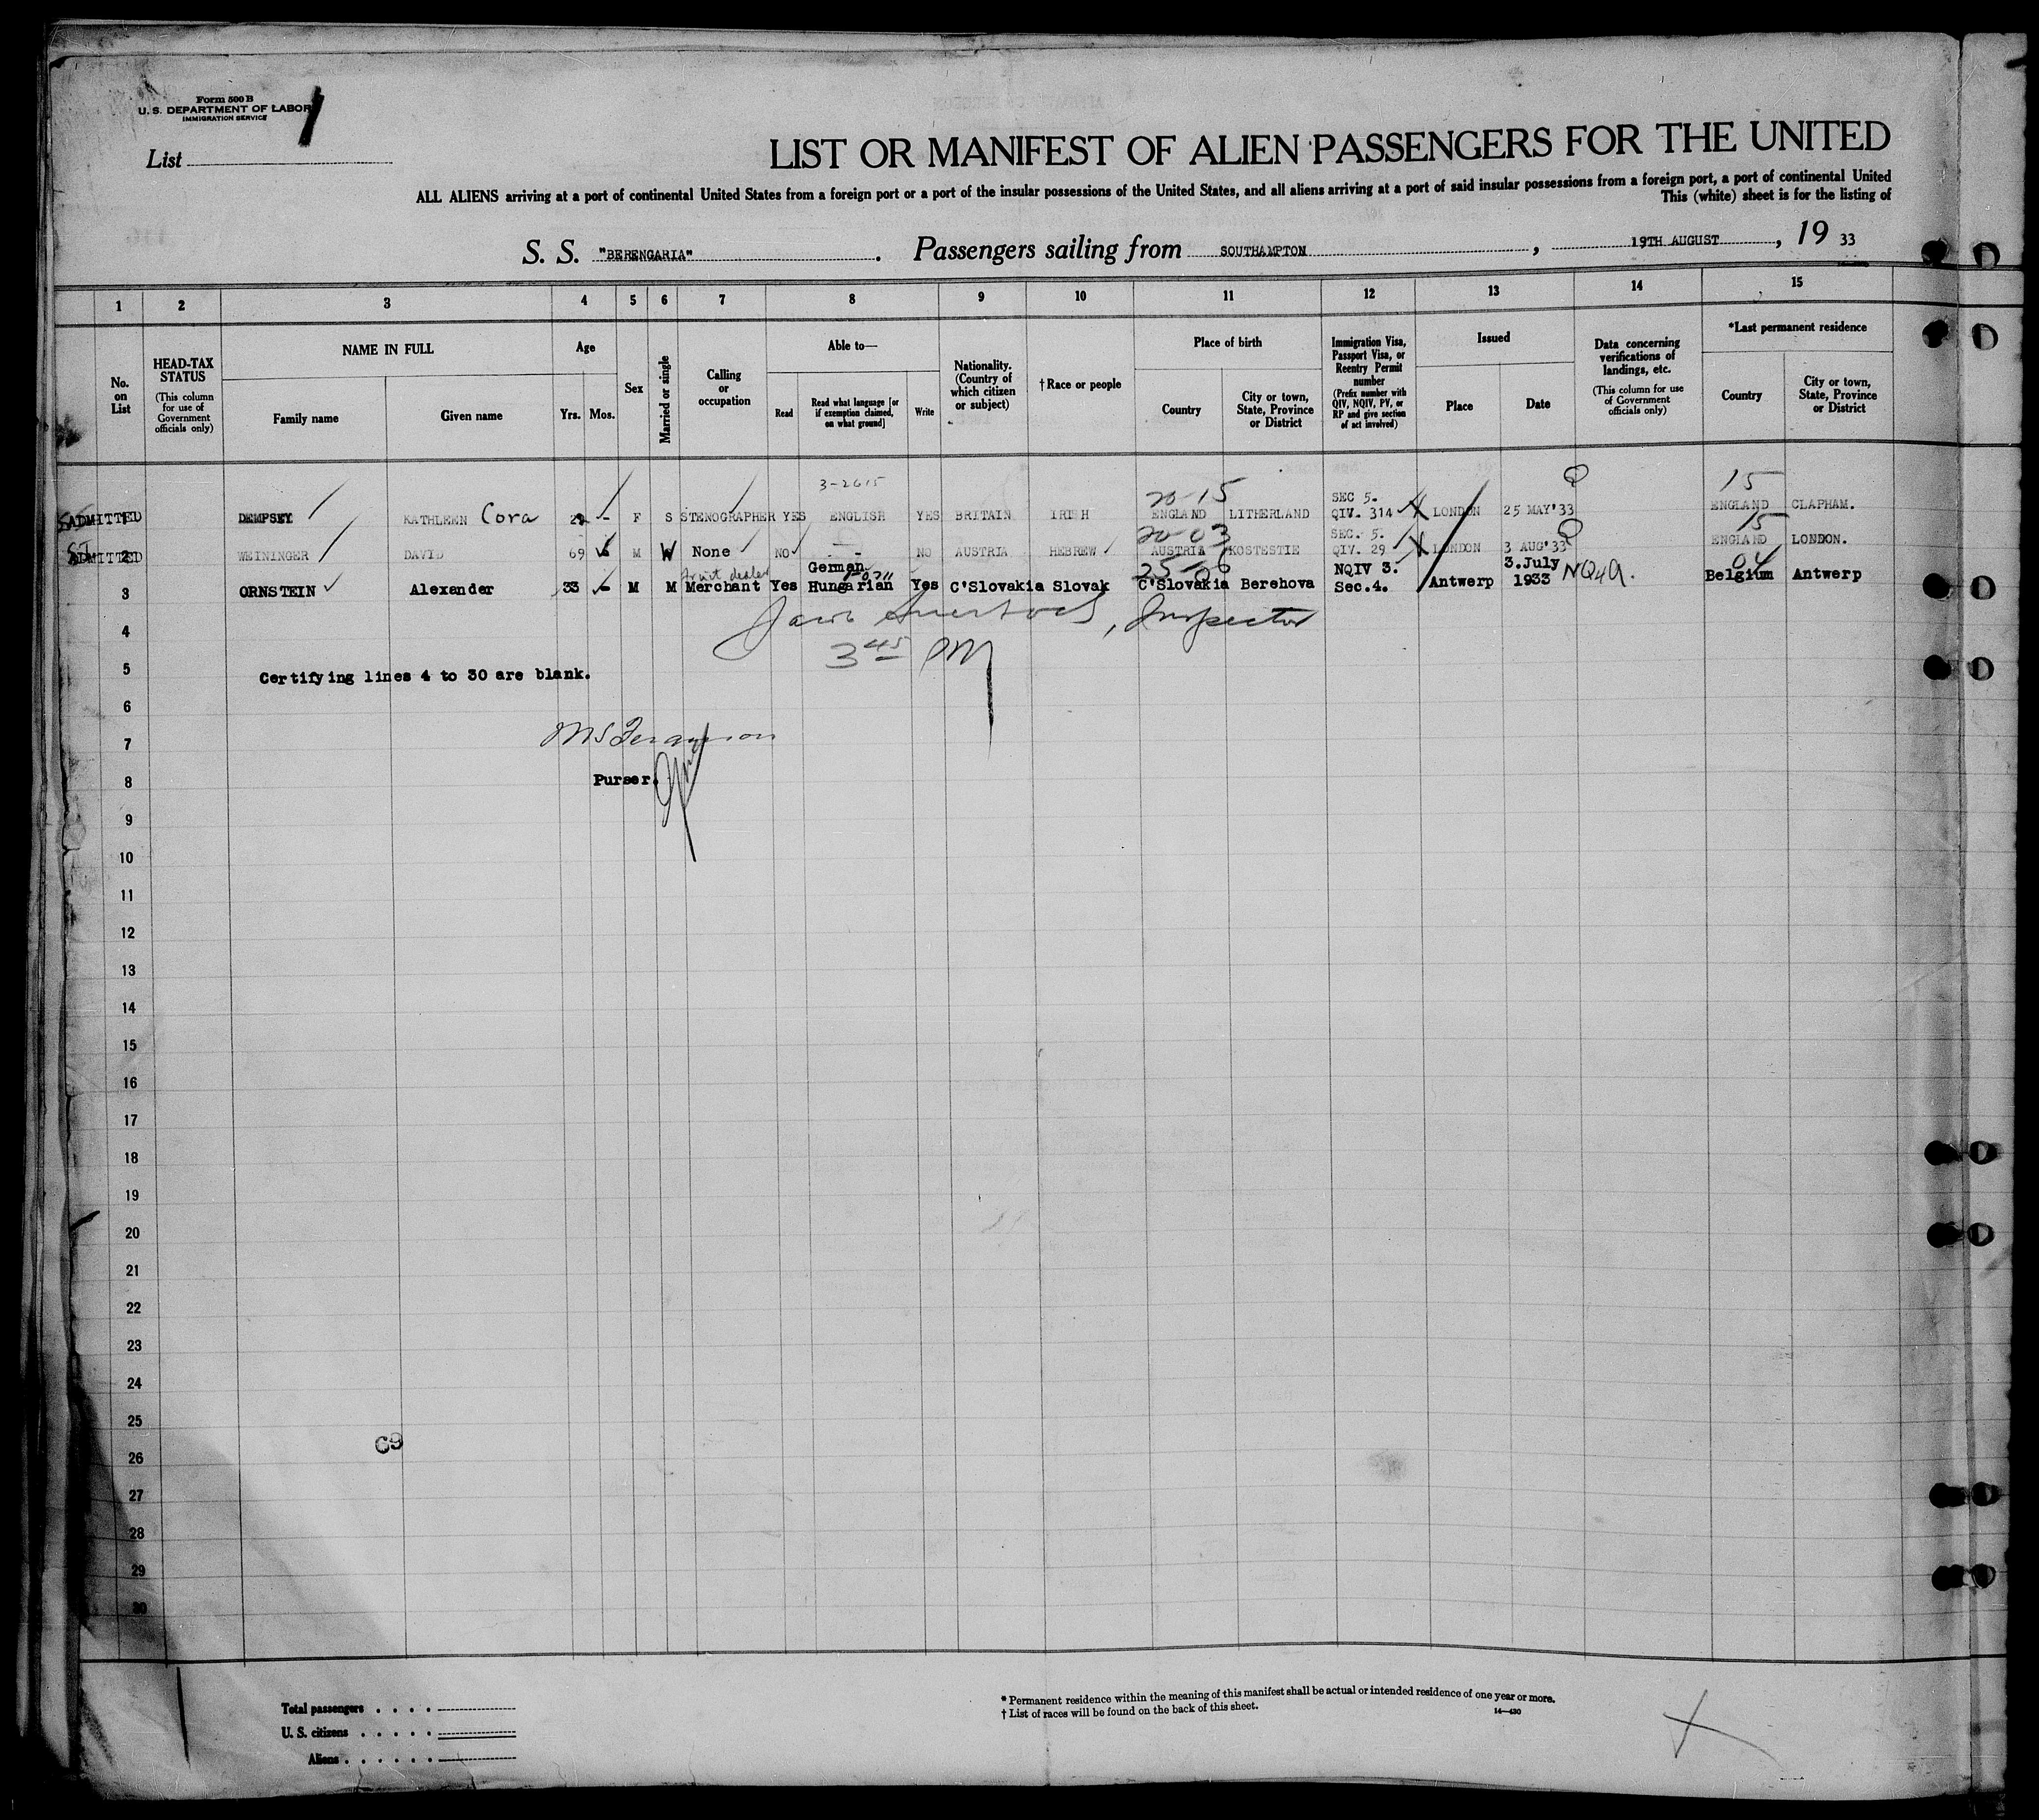 Form 500 B
U. S. DEPARTMENT OF LABOR
IMMIGRATION SERVICE
1
List
LIST OR MANIFEST OF ALIEN PASSENGERS FOR THE UNITED
ALL ALIENS arriving at a port of continental United States from a foreign port or a port of the insular possessions of the United States, and all aliens arriving at a port of said insular possessions from a foreign port, a port of continental United
This (white) sheet is for the listing of
S. S. "BERENGARIA". Passengers sailing from SOUTHAMPTON, 19TH AUGUST, 19 33
1 2 3 4 5 6 7 8 9 10 11 12 13 14 15
No. on List
HEAD-TAX STATUS (This column for use of Government officials only)
NAME IN FULL
Family name Given name
Age
Yrs. Mos.
Sex
Married or single
Calling or occupation
Able to—
Read Read what language [or if exemption claimed, on what ground] Write
Nationality. (Country of which citizen or subject)
†Race or people
Place of birth
Country City or town, State, Province or District
Immigration Visa, Passport Visa, or Reentry Permit number (Prefix number with QIV, NQIV, PV, or RP and give section of act involved)
Issued
Place Date
Data concerning verifications of landings, etc. (This column for use of Government officials only)
*Last permanent residence
Country City or town, State, Province or District
3-2615 20-15 SEC 5. 15
ADMITTED 1 DEMPSEY KATHLEEN Cora - F S STENOGRAPHER YES ENGLISH YES BRITAIN IRISH ENGLAND LITHERLAND QIV. 314 LONDON 25 MAY'33 ENGLAND CLAPHAM.
20-03 SEC. 5. 15
ADMITTED 2 WEININGER DAVID 69 M W None NO - NO AUSTRIA HEBREW AUSTRIA KOSTESTIE QIV. 29 LONDON 3 AUG'33 ENGLAND LONDON.
fruit dealer German NQIV 3. 3.July 04
3 ORNSTEIN Alexander 33 - M M Merchant Yes Hungarian Yes C'Slovakia Slovak C'Slovakia Berehova Sec.4. Antwerp 1933 Belgium Antwerp
4
Inspector
3 45 PM
5 Certifying lines 4 to 30 are blank.
6
7
8 Purser.
9
10
11
12
13
14
15
16
17
18
19
20
21
22
23
24
25
26
27
28
29
30
Total passengers
U. S. citizens
Aliens
* Permanent residence within the meaning of this manifest shall be actual or intended residence of one year or more.
† List of races will be found on the back of this sheet.
14—430